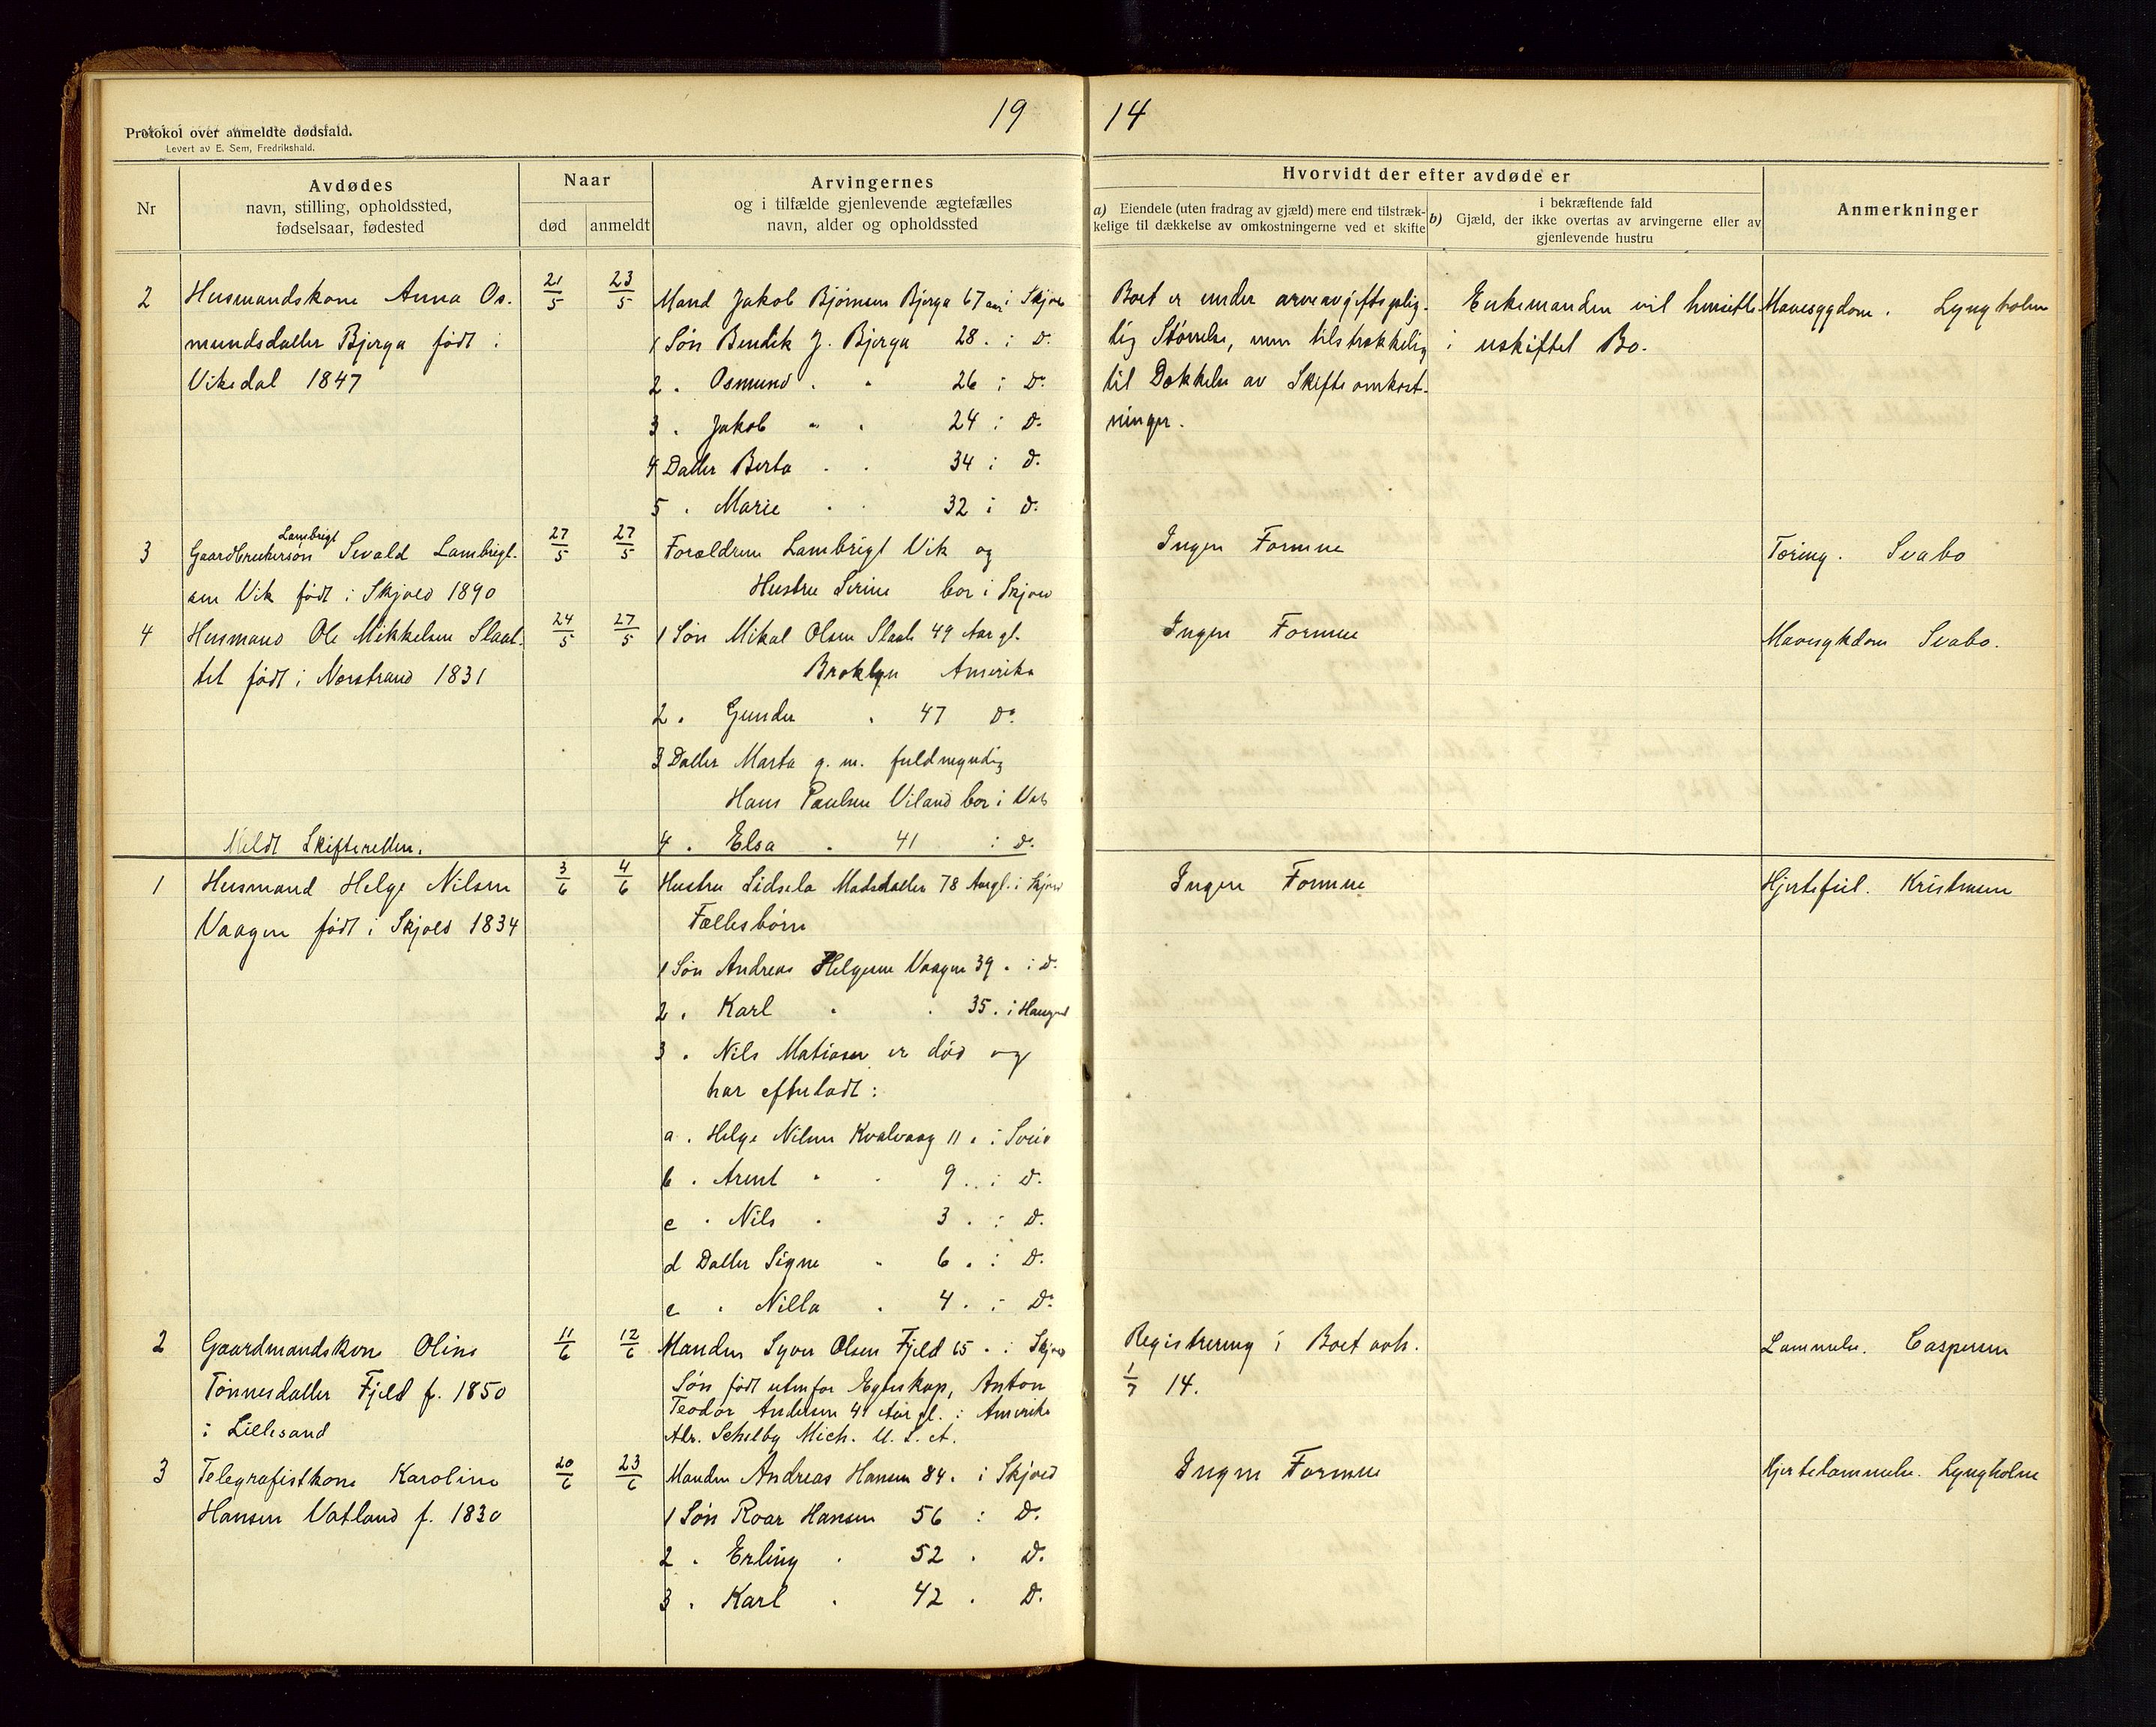 19 14
Protokol over anmeldte dødsfald.
Levert av E. Sem, Fredrikshald.
Nr
Avdødes
navn, stilling, opholdssted,
fødselsaar, fødested
Naar
død
anmeldt
Arvingernes
og i tilfælde gjenlevende ægtefælles
navn, alder og opholdssted
Hvorvidt der efter avdøde er
a) Eiendele (uten fradrag av gjæld) mere end tilstræk-
kelige til dækkelse av omkostningerne ved et skifte
i bekræftende fald
b) Gjæld, der ikke overtas av arvingerne eller av
gjenlevende hustru
Anmerkninger
2 Husmandskone Anna Os-
mundsdatter Bjerga født i
Vikedal 1847
21/5 23/5
Mand Jakob Bjørnsen Bjerga 67 aar i Skjold
1 Søn Bendik J. Bjerga 28 . i Do
2 . Osmund . " 26 i Do
3 . Jakob " . 24 i Do
4 Datter Berta . . 34 i Do
5 . Marie . . 32 i Do
Boet er under arveavgiftspling-
tig Størrelse, men tilstrækkelig
til Dækkelse av Skifteomkost-
ninger.
Enkemanden vil hensitte
i uskiftet Bo.
Mavesygdom. Lyngholm
3 Gaardbrukersøn Lambrigt Sevald Lambrigt-
sen Vik født i Skjold 1890
27/5 27/5
Forældrene Lambrigt Vik og
Hustru Serine bor i Skjold
Ingen Formue
Tæring. Svabo
4 Husmand Ole Mikkelsen Slaat-
tet født i Nerstrand 1831
24/5 27/5
1 Søn Mikal Olsen Slaate 49 Aar gl.
Broklyn Amerika
2 . Gunder . 47 Do
3 Datter Marta g. m. fuldmyndig
Hans Paulsen Viland bor i Vats
4 . Elsa . 41 i Do
Ingen Formue
Mavesykdom Svabo.
Meldt Skifteretten.
1 Husmand Helge Nilsen
Vaagen født i Skjold 1834
3/6 4/6
Hustru Sidsela Madsdatter 78 Aargl. i Skjold
Fællesbørn
1 Søn Andreas Helgesen Vaagen 39 . i Do
2 . Karl . . 35 . i Haugesd
3 . Nils Matiasen er død og
har efterladt:
a . Helge Nilsen Kvalvaag 11 . i Sveio
b . Arent " . 9 . i Do
c . Nils . 3 . i Do
d Datter Signe " 6 . i Do
e . Nilla . 4 . i Do
Ingen Formue
Hjertefeil. Kristensen
2 Gaardmandskone Oline
Tønnesdatter Fjeld f. 1850
i Lillesand
11/6 12/6
Manden Syver Olsen Fjeld 65 . i Skjold
Søn født utenfor Egteskap, Anton
Teodor Andersen 41 Aar gl. i Amerika
Adr. Schelby Mich. U. S. A.
Registrering i Boet avh.
1/7 14.
Lammelse. Caspersen
3 Telegrafistkone Karoline
Hansen Vatland f. 1830
20/6 23/6
Manden Andreas Hansen 84 . i Skjold
1 Søn Roar Hansen 56 i Do
2 . Erling . 52 . Do
3 . Karl . 42 . Do
Ingen Formue
Hjertelammelse. Lyngholm